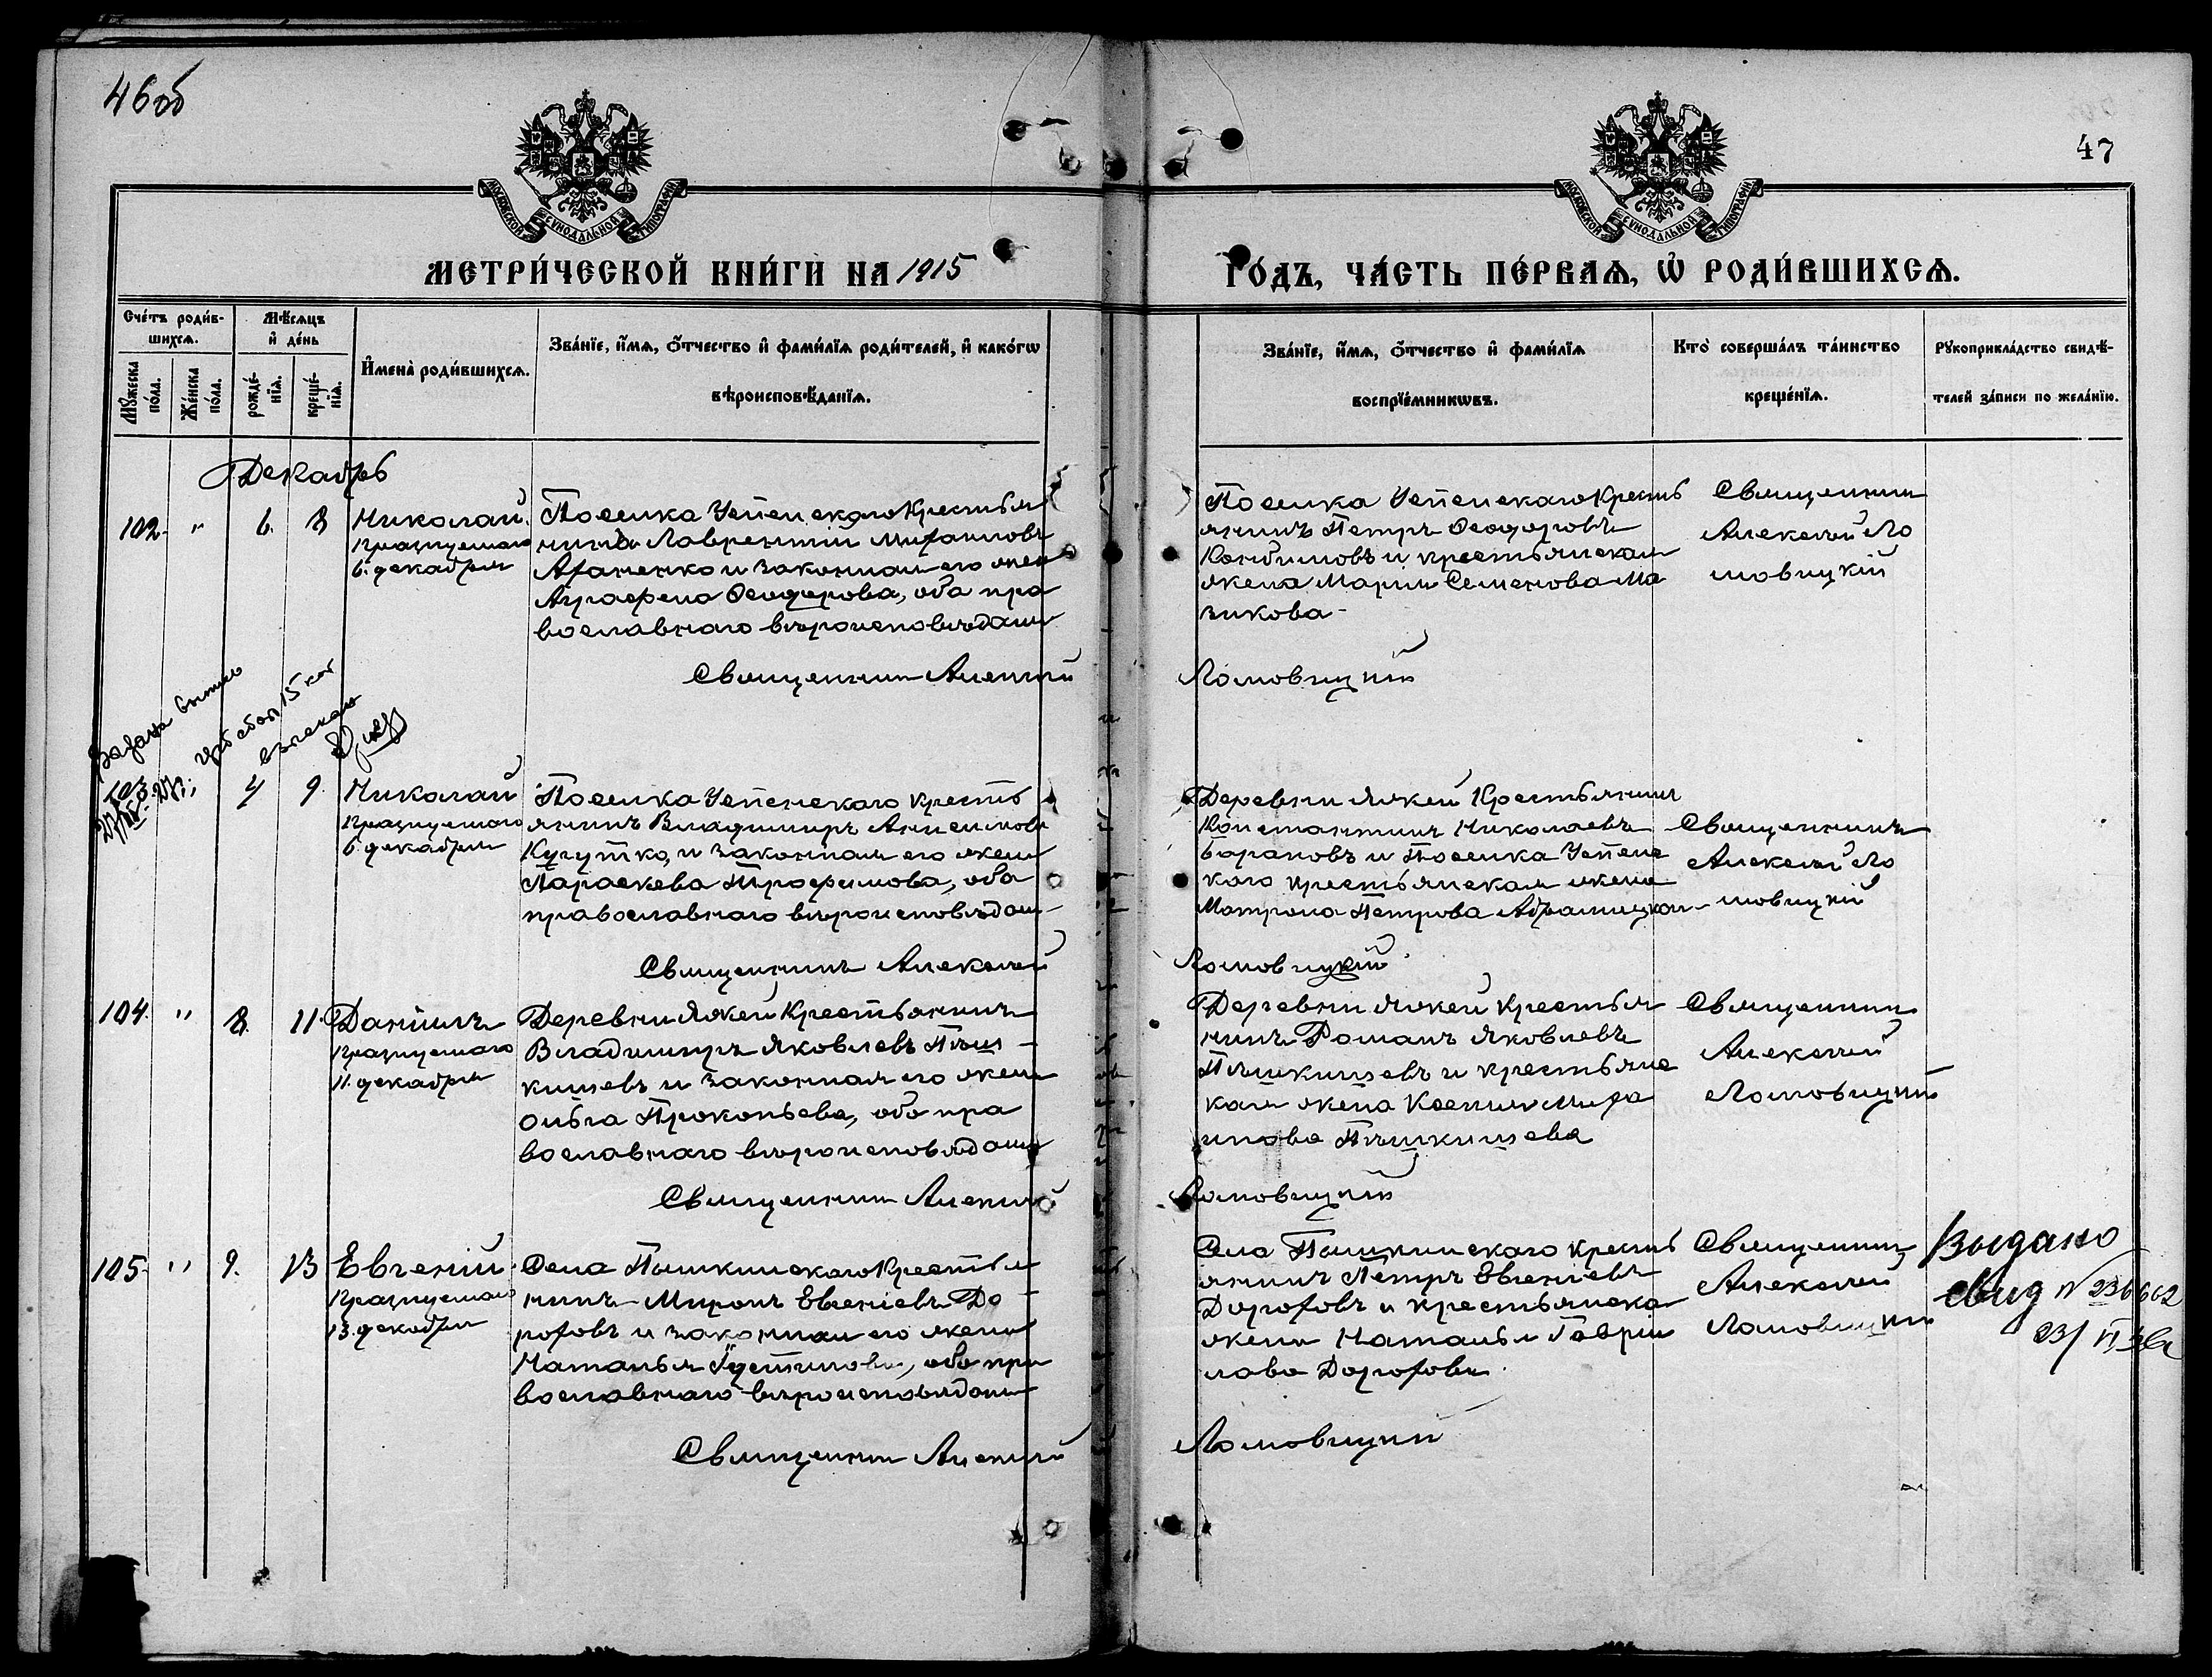 46об
47
МОСКОВСКОЙ СѴНОДАЛЬНОЙ ТИПОГРАФІИ
МОСКОВСКОЙ СѴНОДАЛЬНОЙ ТИПОГРАФІИ
МЕТРИ́ЧЕСКОЙ КНИ́ГИ НА 1915
ГО́ДЪ, ЧА́СТЬ ПЕ́РВАѦ, Ѡ РОДИ́ВШИХСѦ.
Сче́тъ роди́в-
шихсѧ.
Мѣ́сѧцъ
и҆ де́нь
Мꙋ́жеска
по́ла.
Же́нска
по́ла.
рожде́-
нїѧ.
креще́-
нїѧ.
И҆мена̀ роди́вшихсѧ.
Зва́нїе, и҆́мѧ, ѻ҆́тчество и҆ фами́лїѧ роди́телей, и҆ како́гѡ
вѣроисповѣ́данїѧ.
Зва́нїе, и҆́мѧ, ѻ҆́тчество и҆ фами́лїѧ
воспрїе́мникѡвъ.
Кто̀ соверша́лъ та́инство
креще́нїѧ.
Рꙋкоприкла́дство свидѣ́-
телей за́писи по жела́нїю.
Декабрь
102. " 6. 8
Николай.
празнуемаго
6. декабря
Поселка Успенскаго Крестья
нинъ Лаврентій Михаиловъ
Афаненко и законная его жена
Аграфена Феодорова, оба пра
вославнаго вѣроисповѣдания
Священник Алексѣй
Поселка Успенскаго Кресть
янинъ Петръ Феодоровъ
и крестьянская
жена Марія Семенова Ма
зикова
Ломовицкій
Священник
Алексѣй Ло
мовицкій
15 коп
взыскано
103. 4 9.
Николай
празнуемаго
6 декабря
Поселка Успенскаго кресть
янинъ Владимиръ Анисимовъ
Кугутко, и законная его жена
Параскева Трофимова, оба
православнаго вѣроисповѣдан
Священникъ Алексѣй
Деревни Яжей Крестьянинъ
Константинъ Николаевъ
Барановъ и Поселка Успенс
каго крестьянская жена
Матрона Петрова
Ломовицкій
Священникъ
Алексѣй Ло
мовицкій
104. " 8. 11.
Даніилъ
празнуемаго
11. декабря
Деревни Яжей Крестьянинъ
Владимиръ Яковлевъ Пыш
кинцевъ и законная его жена
Ольга Прокопьева, оба пра
вославнаго вѣроисповѣдания
Священник Алексѣй
Деревни Яжей Крестья
нинъ Романъ Яковлевъ
Пышкинцевъ и крестьянс
кая жена Ксения Миха
илова Пышкинцева
Ломовицкій
Священник
Алексѣй
Ломовицкій
105. " 9. 13
Евгеній.
празнуемаго
13. декабря
Села Пышкинскаго Крестья
нинъ Миронъ Евгеніевъ До
рофовъ и законная его жена
Наталья Густинова, оба пра
вославнаго вѣроисповѣдани
Священник Алексѣй
Села Пышкинскаго кресть
янинъ Петръ Евгеніевъ
Дорофовъ и крестьянска
жена Наталья Гаври
лова Дорофова
Ломовицкій
Священник
Алексѣй
Ломовицкій
Выдано
свид № 236662
23/VI